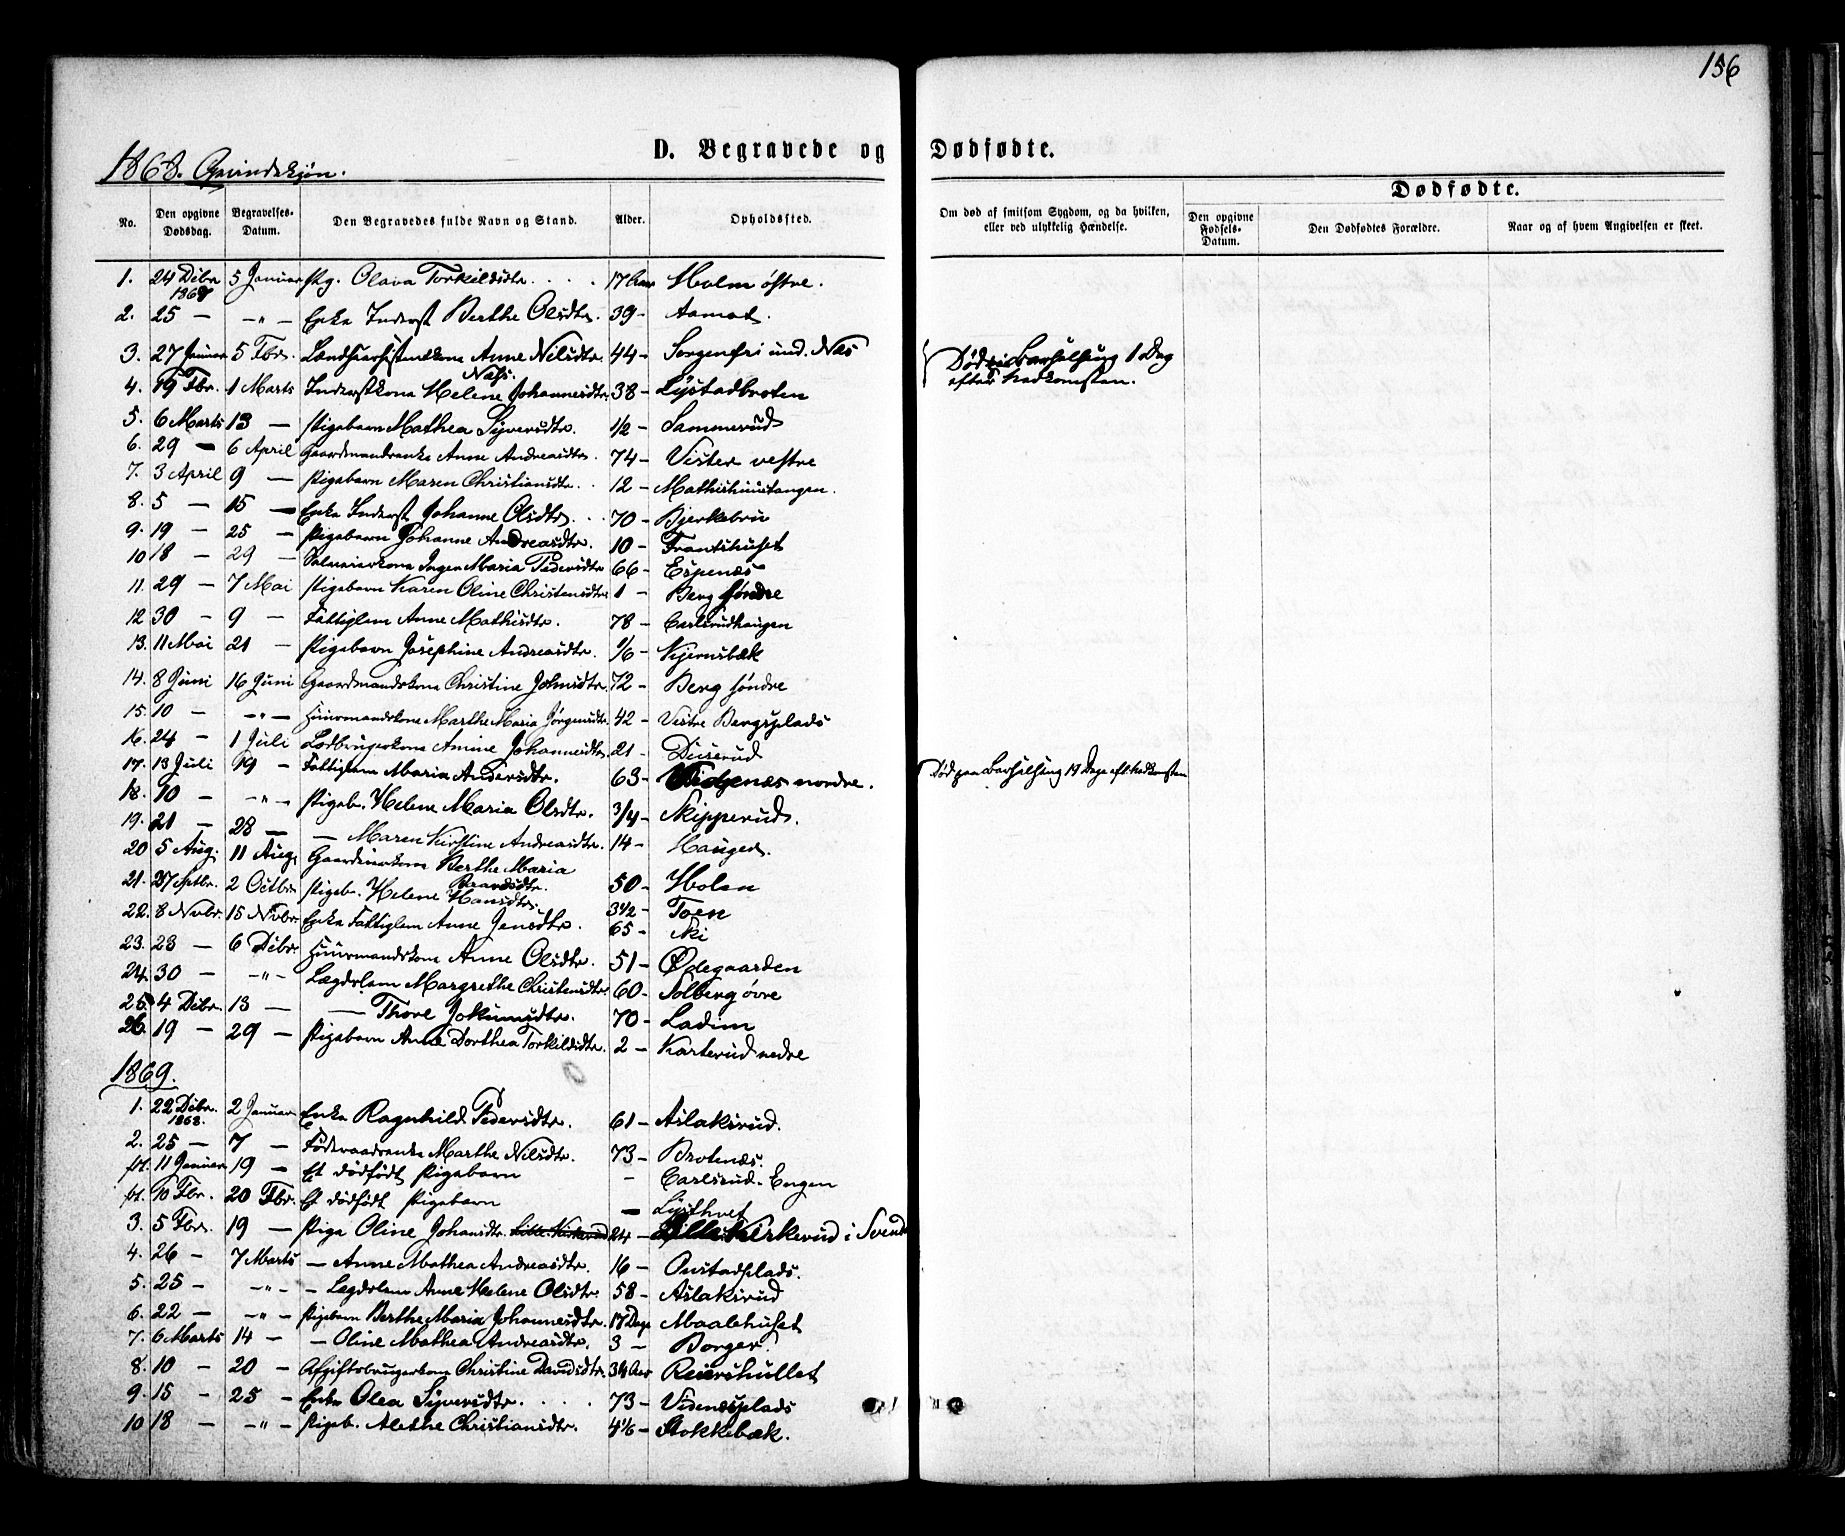 156
D. Begravede og Dødfødte.
1868. Qvindekjøn.
Dødfødte.
No. Den opgivne Dødsdag. Begravelses-Datum. Den Begravedes fulde Navn og Stand. Alder. Opholdssted. Om død af smitsom Sygdom, og da hvilken, eller ved ulykkelig Hændelse. Den opgivne Fødsels-Datum. Den Dødfødtes Forældre. Naar og af hvem Angivelsen er skeet.
1. 24 Debr 1867 5 Januar Pg. Olava Torkildsdtr. 17 Aar Holm østre.
2. 25 — —"— Enke Inderst Berthe Olsdtr. 39 — Aamot.
3. 27 Januar 5 Fbr. Anne Nilsdtr. Næs. 44 — Sorgenfri und. Næs
4. 19 Fbr. 1 Marts Inderstkone Helene Johannesdtr. 38 — Lystadbroten Død i Barselseng 1 Dag efter Nedkomsten.
5. 6 Marts 13 — Pigebarn Mathea Syversdtr. 1/2 — Sammerud
6. 29 — 6 April Gaardmandsenke Anne Andreasdtr. 74 — Vister vestre
7. 3 April 9 — Pigebarn Maren Christiansdtr. 12 — Mathishuustangen.
8. 5 — 15 — Enke Inderst Johanne Olsdtr. 70 — Bjerkebru
9. 19 — 25 — Pigebarn Johanne Andreasdtr. 10 — Frantshuset
10 18 — 29 — Inger Maria Pedersdtr 66 — Espenæs
11. 29 — 7 Mai Pigebarn Karen Oline Christensdtr. 1 — Berg søndre
12 30 — 9 — Fattiglem Anne Mathisdtr. 78 — Carlsrudhaugen
13. 11 Mai 21 — Pigebarn Josephine Andreasdtr. 1/6 — Kjernsbæk
14. 8 Juni 16 Juni Gaardmandskone Christine Johnsdtr. 72 — Berg søndre
15. 10 — —"— Huusmandskone Marthe Maria Jørgensdtr. 42 — Vestre Bergsplads
16. 24 — 1 Juli Lodbrugerkone Amine Johannesdtr. 21 — Duserud Død paa Barselseng 19 Dage eft. Nedkomsten
17. 13 Juli 19 — Fattiglem Maria Andersdtr. 63 — Vidnæs nordre.
18. 10 — —"— Pigeb. Helene Maria Olsdtr. 3/4 — Skipperud.
19. 21 — 28 — — Maren Kirstine Andreasdtr. 14 — Hauger.
20 5 Aug. 11 Aug. Gaardeierkone Berthe Maria Brandsdtr. 50 — Holen
21. 27 Sptbr. 2 Octbr. Pigeb. Helene Hansdtr. 3 1/2 — Toen
22. 8 Nvbr. 15 Nvbr. Enke Fattiglem Anne Jensdtr. 65 — Ski
23. 23 — 6 Debr. Huusmandskone Anne Olsdtr. 51 — Ødegaarden
24. 30 — —"— Lægdslem Margrethe Christensdtr. 60 — Solberg øvre
25. 4 Debr. 13 — — Thore Jokumsdtr. 70 — Ladim
26. 19 — 29 — Pigebarn Anne Dorthea Torkildsdtr. 2 — Karterud nedre
1869.
1. 22 Debr. 1868. 2 Januar Enke Ragnhild Pedersdtr. 61 — Aslaksrud.
2. 25 — 7 — Føderaadsenke Marthe Nilsdtr. 73 — Brotnæs.
11 Januar 19 — Et dødfødt Pigebarn — Carlsrud-Engen
10 Fbr. 20 Fbr. Et dødfødt Pigebarn — Lysthvet
3. 5 Fbr. 19 — Pige Oline Johansdtr. Lille-Kirkerud 24 — Lille Kirkerud i
4. 26 — 7 Marts — Anne Mathea Andreasdtr. 16 — Onstadplads.
5. 25 — —"— — Lægdslem Anne Helene Olsdtr 58 — Aslaksrud
6. 22 — —"— Pigebarn Berthe Maria Johannesdtr. 17 Dage Maalehuset
7. 6 Marts 14 — — Oline Mathea Andreasdtr. 3 — Borger.
8. 10 — 20 — Afgiftsbrugerkone Christine Davidsdtr. 34 Aar Reiershullet
9. 15 — 25 — Enke Olea Syversdtr. 73 — Videnæsplads
10 18 — —"— Pigeb. Alethe Christiansdtr. 4 1/6 — Stokkebæk.